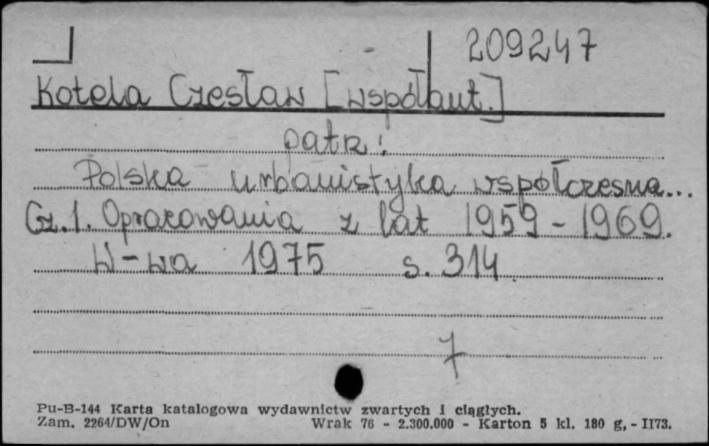 209247
Kotela Czesław [współaut.]
patrz:
Polska urbanistyka współczesna...
Cz.1. Opracowania z lat 1959-1969.
W-wa 1975 s. 314
7
Pu-B-144 Karta katalogowa wydawnictw zwartych i ciągłych.
Zam. 2264/DW/On Wrak 76 - 2.300.000 - Karton 5 kl. 180 g, - II73.